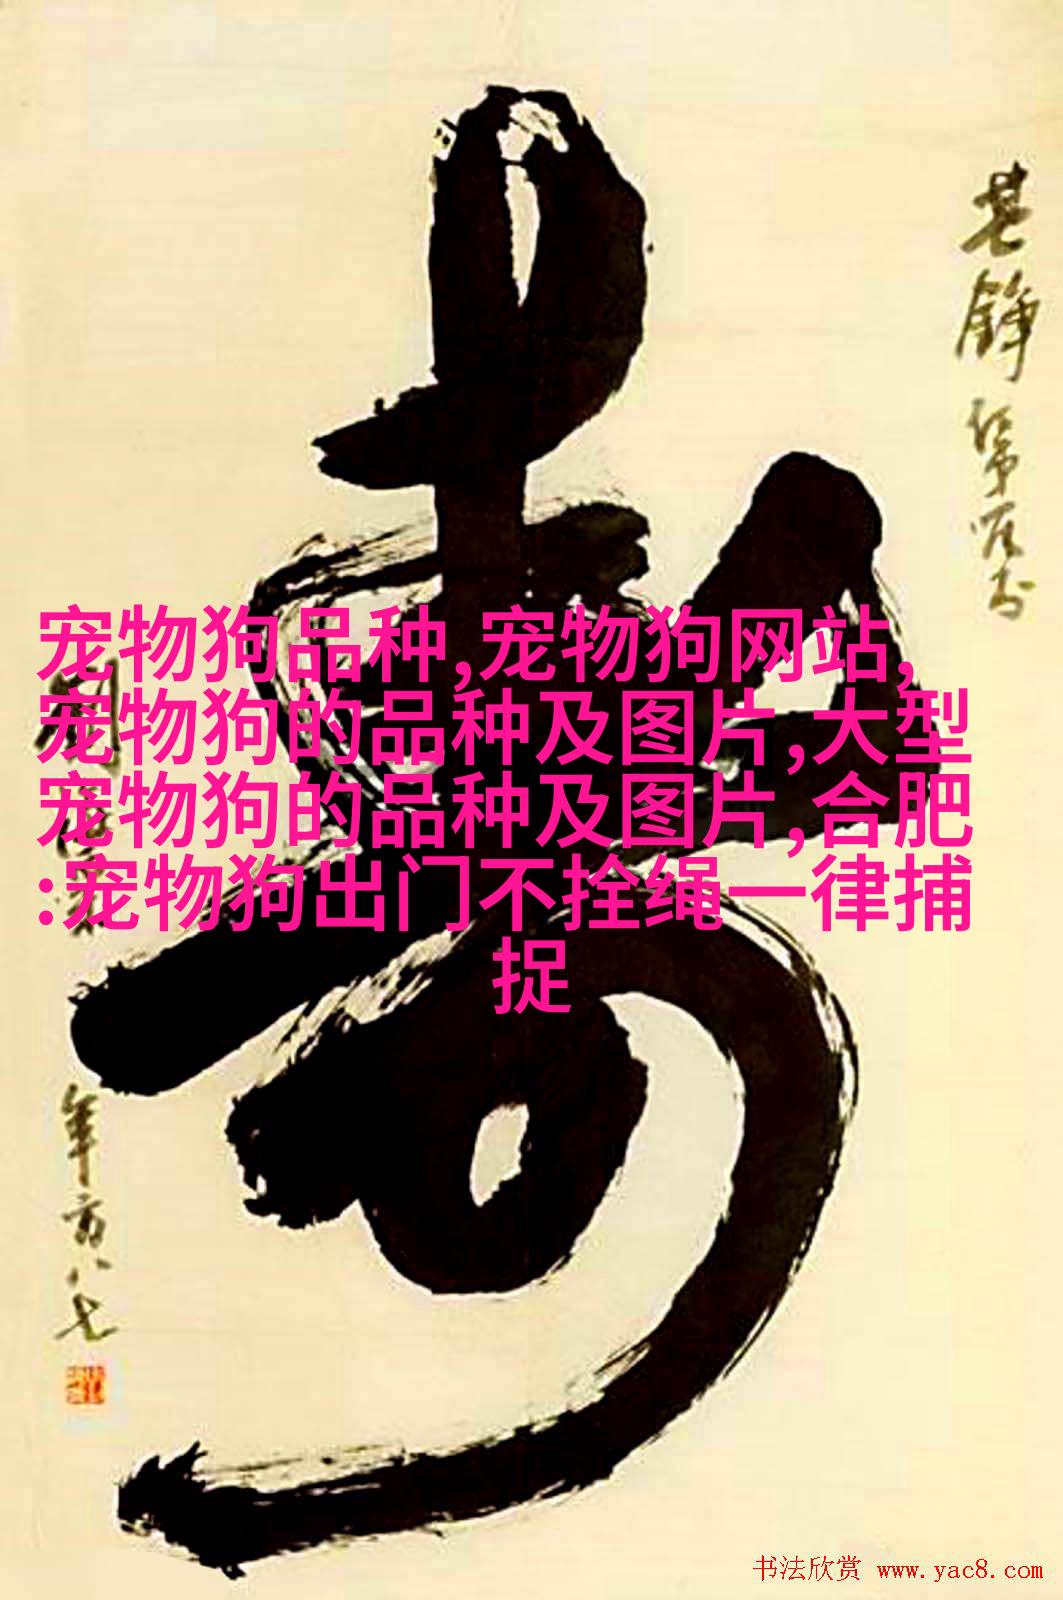 寿
宠物狗品种,宠物狗网站,
宠物狗的品种及图片,大型
宠物狗的品种及图片,合肥
:宠物狗出门不拴绳一律捕
捉
年方八七
书法欣赏 www.yac8.com